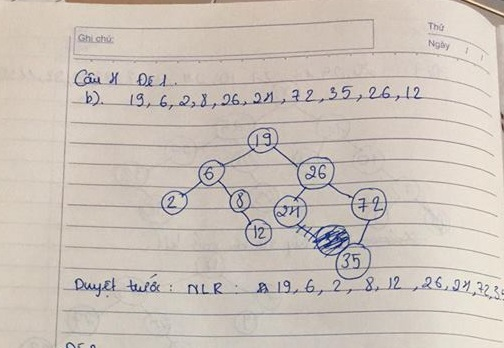 Ghi chú:
Thứ
Ngày / /
Câu 4 Đề 1.
b). 19, 6, 2, 8, 26, 24, 72, 35, 26, 12
19
6 26
2 8 24 72
12 35
Duyệt trước: NLR: 19, 6, 2, 8, 12, 26, 24, 72, 35